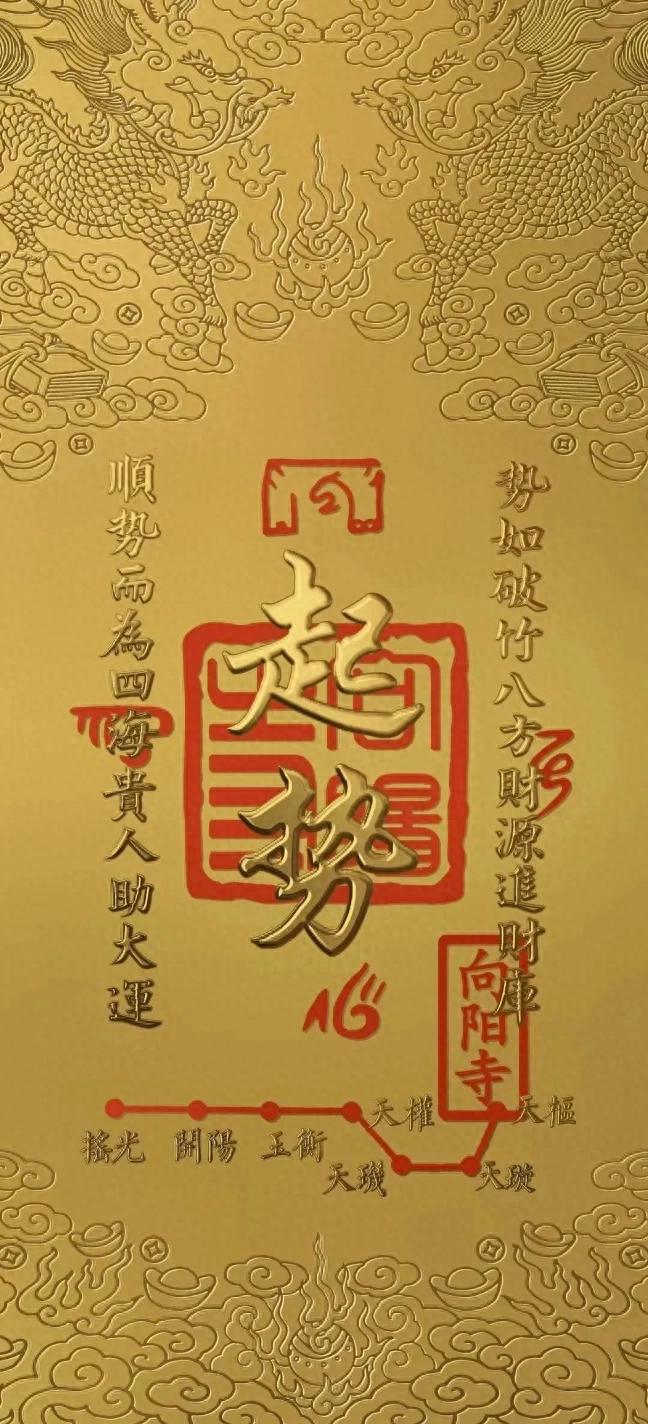 勢如破竹八方財源進財庫
起势
順势而為四海貴人助大運
向阳寺
搖光
開陽
玉衡
天權
天璣
天璇
天樞